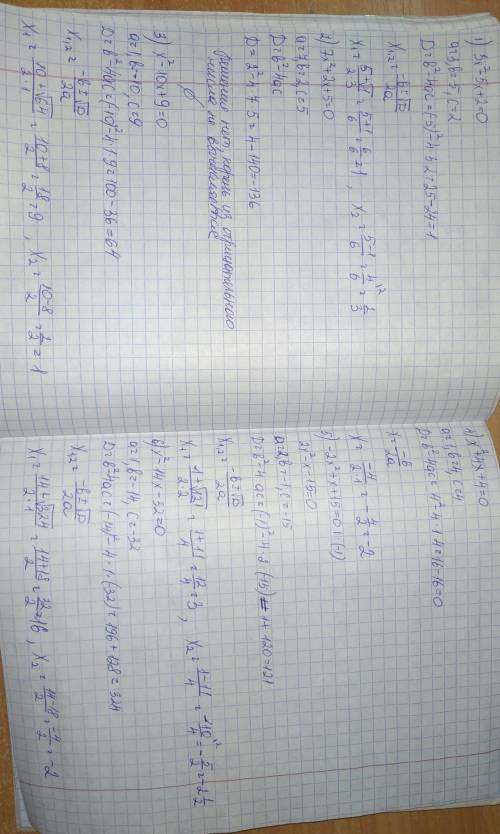 1) 3x²-5x+2=0
a=3, b=-5, c=2
D=b²-4ac=(-5)²-4·3·2=25-24=1
x₁,₂= -b±√D / 2a
x₁= 5+√1 / 2·3 = 5+1 / 6 = 6/6 = 1, x₂= 5-1 / 6 = 4/6 = 2/3
2) 7x²+2x+5=0
a=7, b=2, c=5
D=b²-4ac
D=2²-4·7·5=4-140=-136
Решений нет, корень из отрицательного
числа не
3) x²-10x+9=0
a=1, b=-10, c=9
D=b²-4ac=(-10)²-4·1·9=100-36=64
x₁,₂= -b±√D / 2a
x₁= 10+√64 / 2·1 = 10+8 / 2 = 18/2 = 9, x₂= 10-8 / 2 = 2/2 = 1
4) x²+4x+4=0
a=1, b=4, c=4
D=b²-4ac=4²-4·1·4=16-16=0
x= -b / 2a
x= -4 / 2·1 = -4/2 = -2
5) -2x²+x+15=0 |·(-1)
2x²-x-15=0
a=2, b=-1, c=-15
D=b²-4ac=(-1)²-4·2·(-15)=1+120=121
x₁,₂= -b±√D / 2a
x₁= 1+√121 / 2·2 = 1+11 / 4 = 12/4 = 3, x₂= 1-11 / 4 = -10/4 = -5/2 = -2 1/2
6) x²-14x-32=0
a=1, b=-14, c=-32
D=b²-4ac=(-14)²-4·1·(-32)=196+128=324
x₁,₂= -b±√D / 2a
x₁= 14+√324 / 2·1 = 14+18 / 2 = 32/2 = 16, x₂= 14-18 / 2 = -4/2 = -2